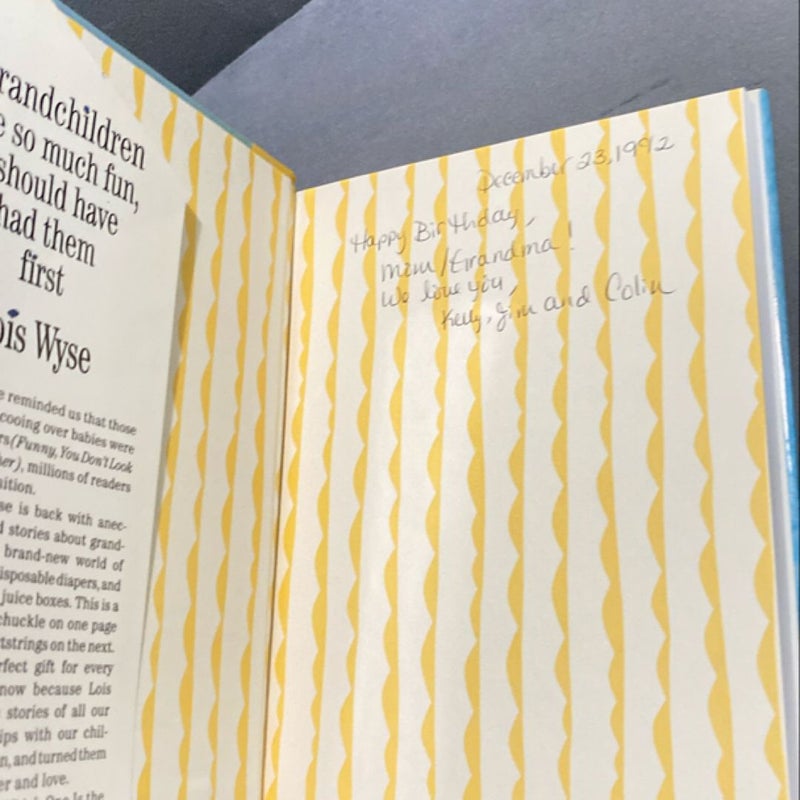 randchildren
e so much fun,
should have
had them
first
ois Wyse
e reminded us that those
cooing over babies were
rs (Funny, You Don't Look
er), millions of readers
nition.
se is back with anec-
d stories about grand-
brand-new world of
isposable diapers, and
juice boxes. This is a
chuckle on one page
tstrings on the next.
rfect gift for every
now because Lois
stories of all our
ips with our chil-
n, and turned them
er and love.
One Is the
December 23, 1992
Happy Birthday,
Mom/Grandma!
We love you,
Kelly, Jim and Colin